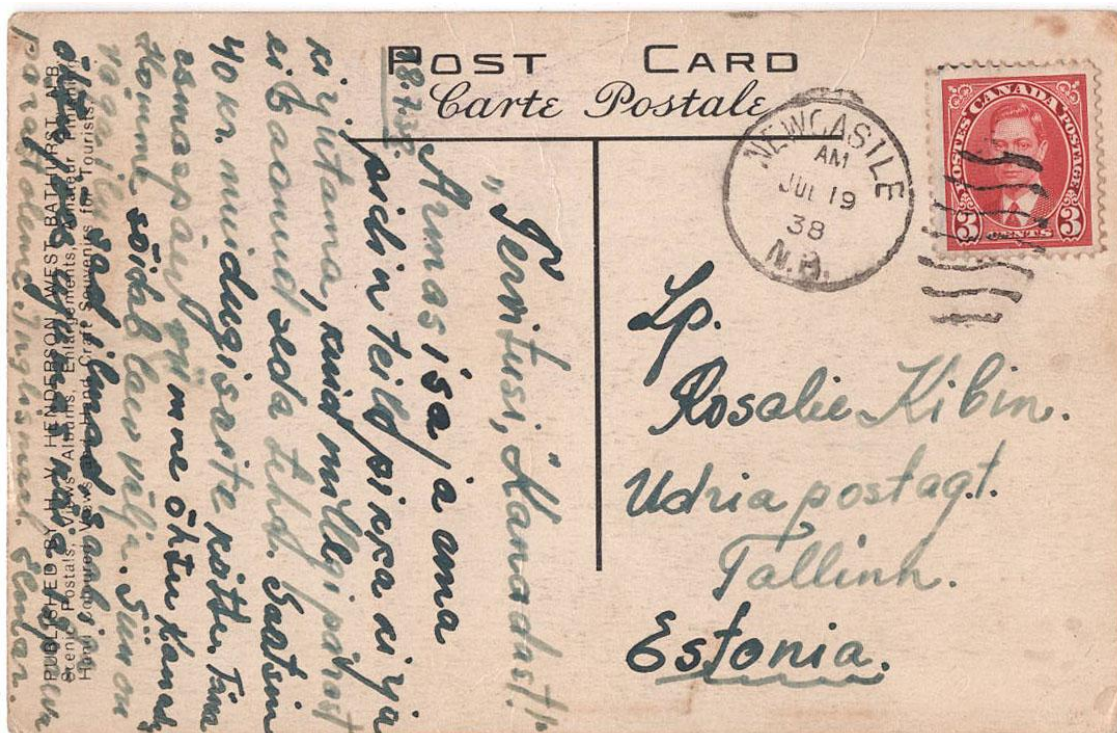 POST CARD
Carte Postale
NEWCASTLE
AM
JUL 19
38
N.B.
POSTES CANADA POSTAGE
3 CENTS 3
Lp.
Rosalie Kibin.
Udria postagt.
Tallinn.
Estonia.
18.7.38.
"Tervitusi, Kanadast!"
Armas isa ja ema
pidin teile pissa kirja
kirjutama, kuid millegi pärast
ei ole aeamud seda teha. Saatsin
40 kr. muidugi saite kätte. Täna
esmaspäev
me õhtu Kanada
sõidab laev välja. Siin on
väga ilu
sad ilmad
PUBLISHED BY H. V. HENDERSON, WEST BATHURST, N.B.
Scenic Postals, Views, Albums, Enlargements, Amateur
Hand Coloured Views and Hand Craft Souvenirs for Tourists.